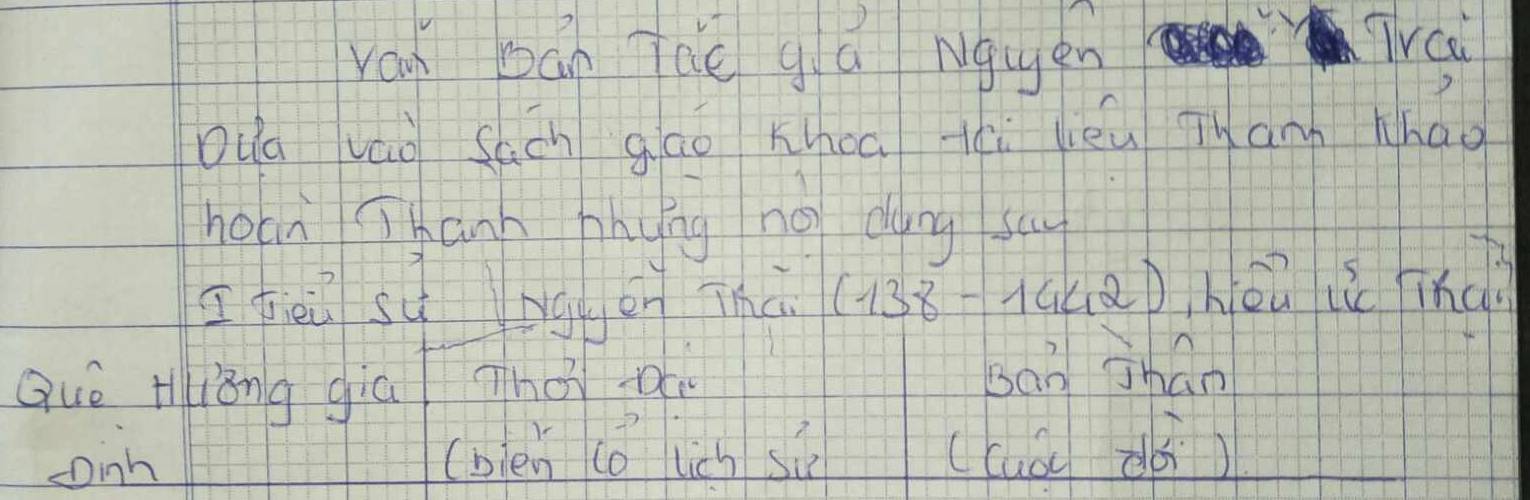 Văn Bản Tác giả Nguyễn Trãi
Dựa vào Sách giáo Khoa tài liệu Tham Khảo
hoàn Thành những nội dung sau
I Tiểu Sử Nguyễn Trãi (138 - 1442), hiệu ức Trai
Quê Hương gia Thời Đại Bản Thân
Đình (biến cố lịch sử (Cuộc đời)